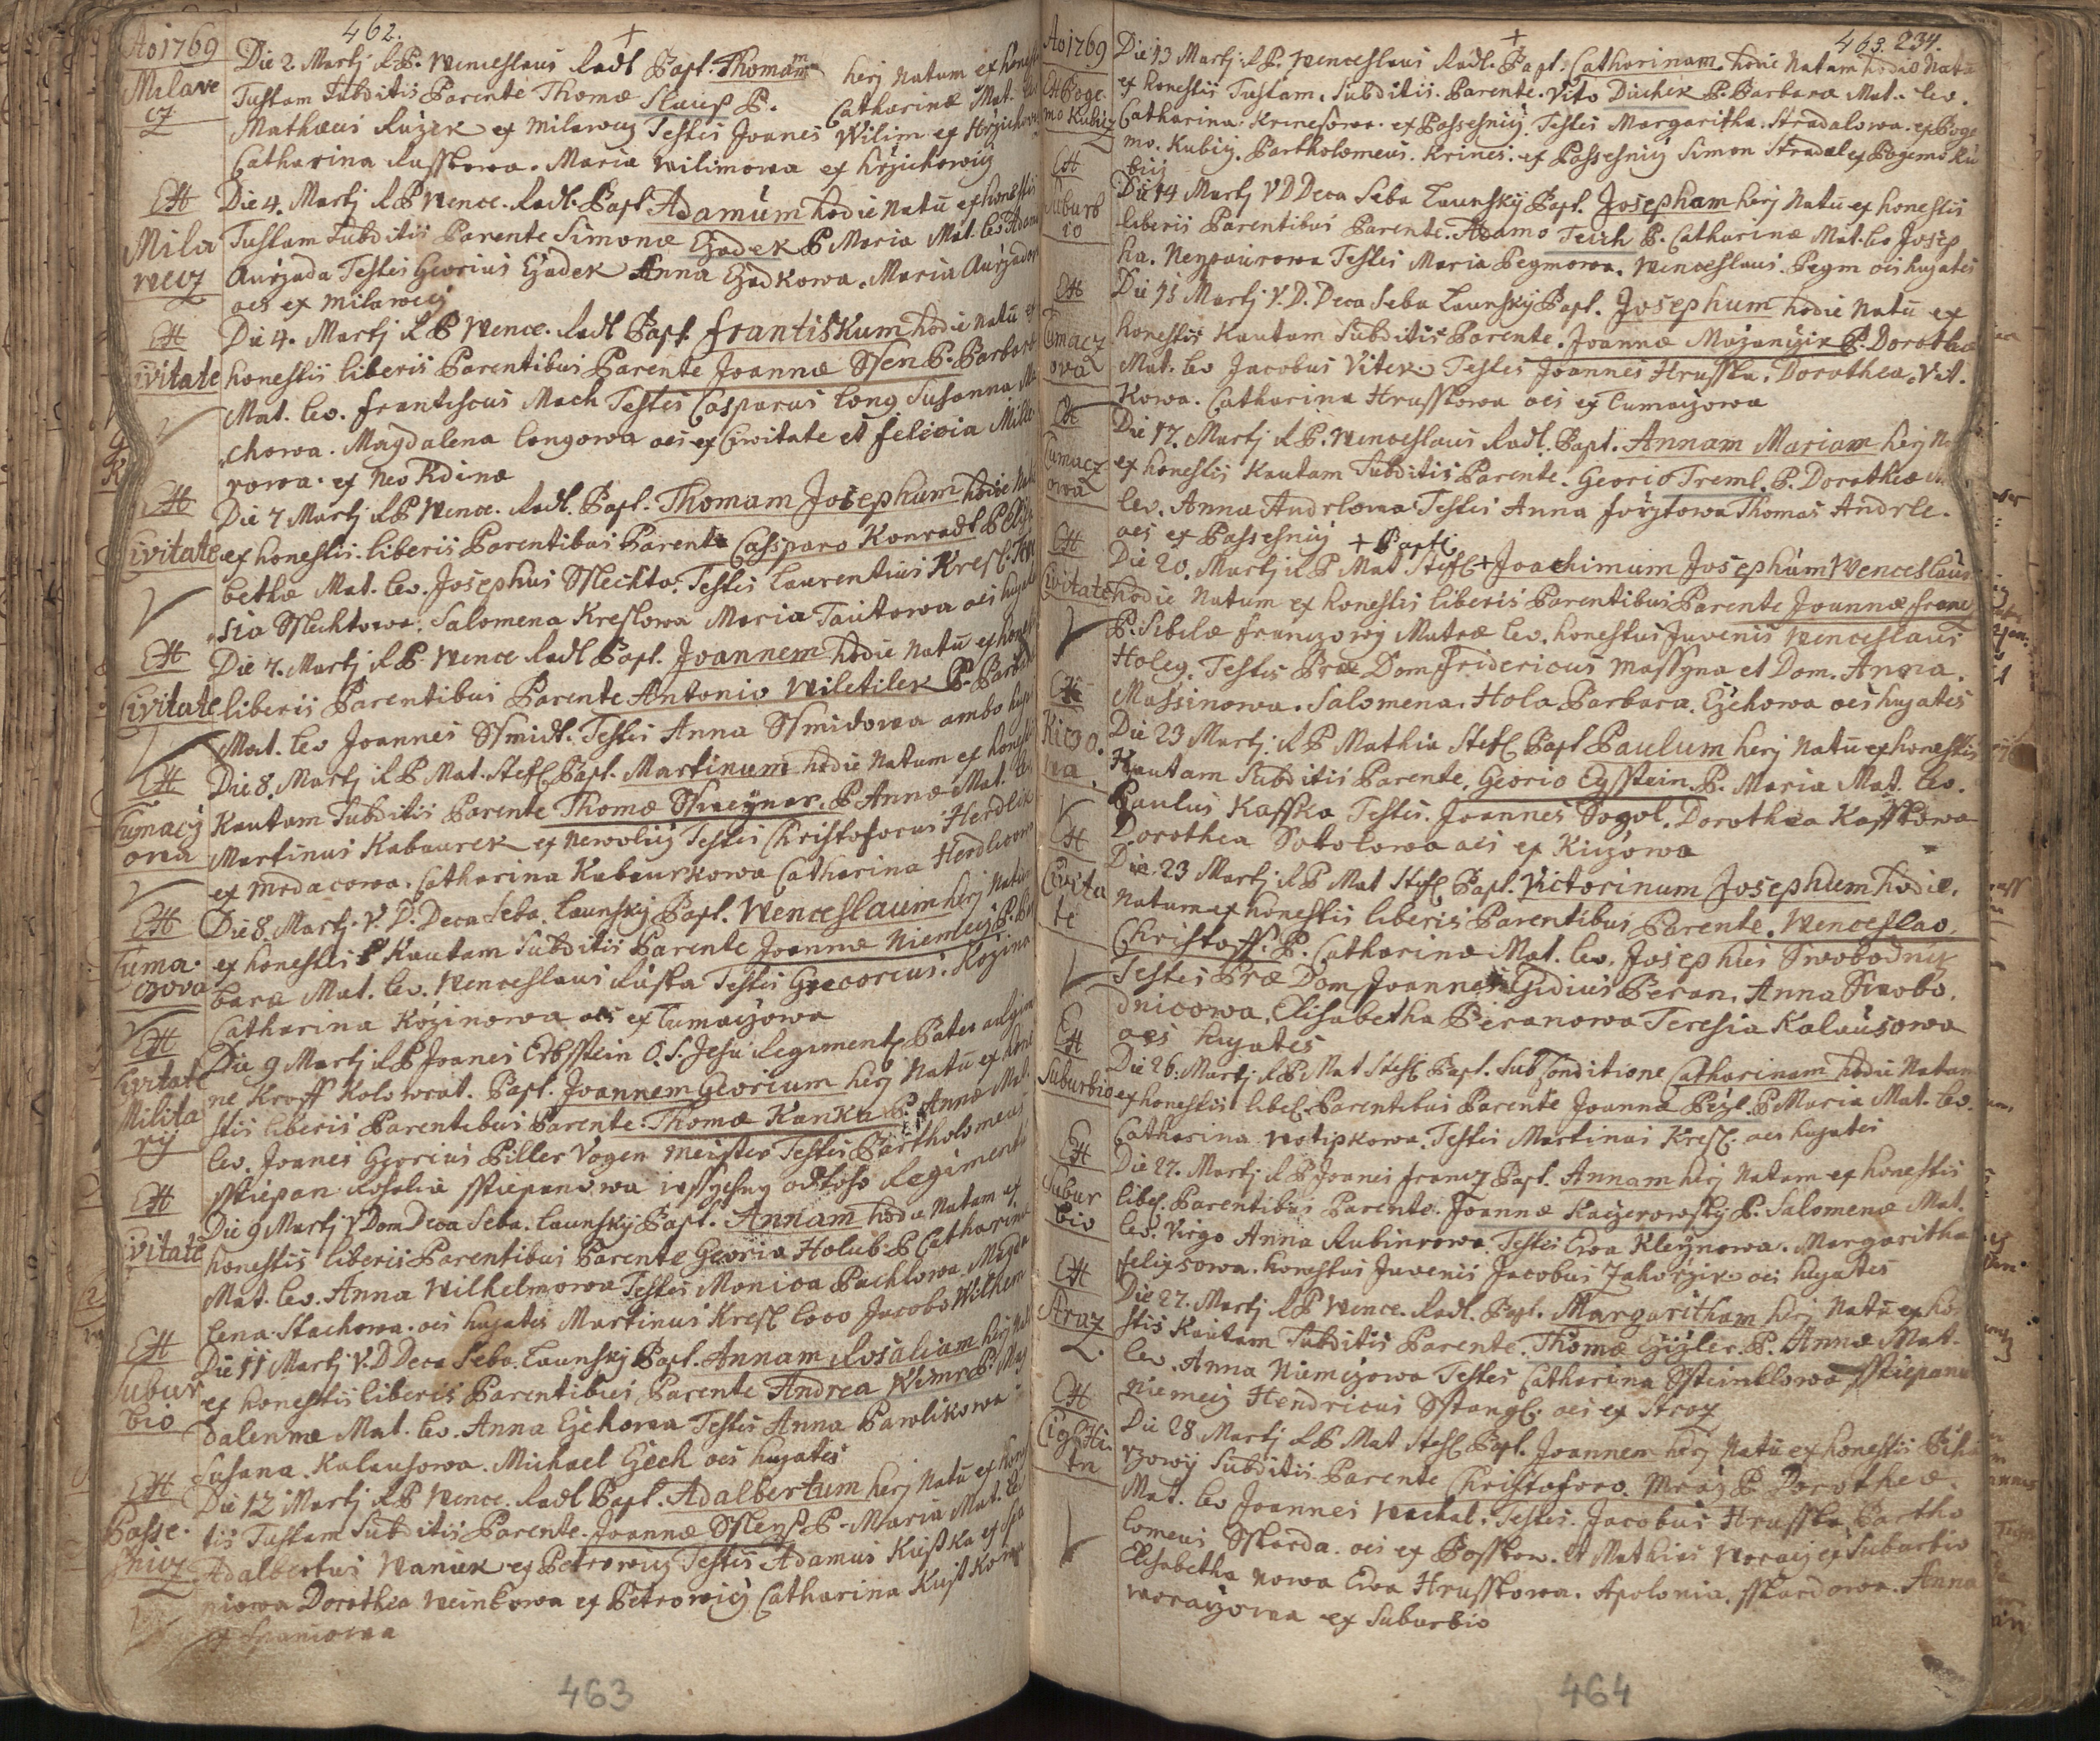 462.
Ao 1769
Milave
cz
Die 2 Martj R.P. Wenceslaus Radl Bapt. Thomam herj Natum ex hones
Tustam Subditis Parente Thomæ Slaup P. Catharinæ Mat. Lev
Mathæus Ruzek ex Milawcz Testes Joanes Wilim ex Hrzichow
Catharina Russkowa. Maria Wilimowa ex hrzichowicz
Mila
wecz
Die 4. Martj R P Wence. Radl. Bapt Adamum hodie Natū ex honestis
Tustam Subditis Parente Simonæ Czadek P Maria Mat. Lev Adam
Aurzada Testes Georius Czadek Anna Czadkowa. Maria Aurzadow
oes ex Milawecz
Civitate
Die 4. Martj R P Wence. Radl Bapt Frantiskum hodie Natū ex
honestis liberis Parentibus Parente Joannæ Ssen P. Barbar
Mat. Lev. Frantiscus Mach Testes Casparus Long Susanna Ma
chowa. Magdalena Longowa oes ex Civitate et Felicia Mille
rowa. ex Neo Kdinæ
Civitate
Die 7 Martj R P Wence. Radl. Bapt. Thomam Josephum hodie Na
ex honestis liberis Parentibus Parente Casparo Konradt P Elisa
bethæ Mat. Lev. Josephus Sslechta. Testes Laurentius Kresl. The
sia Sslechtowa. Salomena Kreslowa Maria Tautowa oes hugat
Civitate
Die 7. Martj R P Wence Radl Bapt. Joannem hodie Natū ex hones
liberis Parentibus Parente Antonio Wiletilek P. Barba
Mat. Lev Joannes Ssmidt. Testes Anna Ssmidowa ambo hug
Tumacz
owa
Die 8. Martj R P Mat. Stefl Bapt. Martinum hodie Natum ex hones
Kautam Subditis Parente Thomæ Sswegner. P Annæ Mat. Le
Martinus Kabaurek ex Newolicz Testes Christoforus Herdlik
ex Mrdacowa. Catharina Kabaurkowa Catharina Herdlicow
Tuma.
czova
Die 8. Martj. V. D. Deca Seba. Launsky Bapt. Wenceslaum herj Natu
ex honestis Kautam Subditis Parente Joannæ Niemecz P. Bar
bara Mat. Lev. Wenceslaus Russa Testes Grecorius. Kozina
Catharina Kozinowa oes ex Tumaczowa
Civitate
Milita
ry
Die 9 Martj R P Joanes Erbsstein O. S. Jesu Regiment Pater
ne Kroff Kolowrat. Bapt. Joannem Georium herj Natū ex hone
stis liberis Parentibus Parente. Thomæ Kanka P. Annæ Mat.
Lev. Joanes Georius Piller Vogen meister Testes Bartholomeus
Sstiepan Rosalia Sstiepanowa wssyckny odtoho Regimenti
Civitate
Die 9 Martj V Dom Deca Seba. Launsky Bapt. Annam hodie Natam ex
honestis liberis Parentibus Parente Georio Holub. P Catharina
Mat. Lev. Anna Wilhelmowa Testes Monica Pachlowa Magda
lena Stachowa. oes hugates Martinus Kresl loco Jacobo Wilhelm
Subur
bio
Die 11 Martj V. D Deca Seba. Launsky Bapt. Annam Rosaliam herj Nat
ex honestis liberis Parentibus Parente Andrea Wimer P. Mag
dalennæ Mat. Lev. Anna Czehowa Testes Anna Pawlikowa
Susana. Kalausowa. Michael Czech oes hugates
Passe.
Snicz
Die 12 Martj R P Wence. Radl Bapt. Adalbertum herj Natū ex hones
tis Tustam Subditis Parente. Joannæ Ssleys P. Maria Mat. Le
Adalbertus Waniek ex Petrowicz Testes Adamus Kustka ex Spa
niowa Dorothea Weinkowa ex Petrowicz Catharina Kustkowa
ex Spaniowa
463
463. 234.
Ao 1769
Boge
mo Kubicz
Die 13 Martj. R P. Wenceslaus Radl. Bapt. Catharinam hodie Natam hodie Natā
ex honestis Tustam. Subditis. Parente. Vito Duchek P. Barbara Mat. Lev.
Catharina. Krinesowa. ex Passesnicz. Testes Margaritha. Stradalowa. ex Boge
mo. Kubicz. Bartholomeus. Krines. ex Passesnicz Simon Stradal ex Bogemo Ku
bicz
Suburb
io
Die 14 Martj V D Deca Seba Launsky Bapt. Josepham herj Natū ex honestis
liberis Parentibus Parente. Adamo Teich P. Catharinæ Mat. Lev Josep
ha. Neypaurowa Testes Maria Pegmowa. Wenceslaus. Pegm oes hugates
Tumacz
ova
Die 15 Martj V. D. Deca Seba Launsky Bapt. Josephum hodie Natū ex
honestis Kautam Subditis Parente. Joannæ Muzanczik P. Dorothea
Mat. Lev Jacobus Vitek. Testes Joannes Hrusska. Dorothea. Vit.
kowa. Catharina Hrusskowa oes ex Tumaczowa
Tumacz
owa
Die 17. Martj R P. Wenceslaus Radl. Bapt. Annam Mariam herj Na
ex honestis Kautam Subditis Parente. Georio Treml. P. Dorotheæ
Lev. Anna Andrlowa Testes Anna Forstowa Thomas Andrle.
oes ex Passesnicz + Bapt
Civitate
Die 20. Martj R P Mat Stefl + Joachimum Josephum Wenceslaum
hodie Natum ex honestis liberis Parentibus Parente Joannæ Franc
P. Sibilæ Franczowy Matræ Lev. honestus Juvenis Wenceslaus
Holeg. Testes Præ Dom Fridericus Massyna et Dom. Anna.
Massinowa. Salomena. Hola Barbara. Czehowa oes hugates
Kiczo.
wa
Die 23 Martj. R P Mathia Stefl Bapt Paulum herj Natū ex honestis
Kautam Subditis Parente. Georio Eysstein. P. Maria Mat. Lev.
Paulus Kasska Testes. Joannes Sogol. Dorothea Kasskowa
Dorothea Sokolowa oes ex Kiczowa
Civita
te
Die. 23 Martj R P Mat Stefl Bapt. Victorinum Josephum hodie.
Natum ex honestis liberis Parentibus Parente. Wenceslao.
Christoff. P. Catharinæ Mat. Lev. Josephus Swobodny
Testes Præ Dom Joannes Egidius Beran. Anna Swobo.
dnicowa. Elisabetha Beranowa Teresia Kalausowa
oes hugates
Suburbio
Die 26. Martj R P Mat Stefl Bapt. Sub Conditione Catharinam hodie Natam
ex honestis libe. Parentibus Parente Joannæ Pezl. P Maria Mat. Lev.
Catharina Wotipkowa. Testes Martinus Kresl. oes hugates
Subur
bio
Die 27. Martj R P Joanes Francz Bapt. Annam herj Natam ex honestis
libe. Parentibus Parente. Joannæ Kaczerowsky P. Salomenæ Mat.
Lev. Virgo Anna Rubinrowa. Testes Ewa Kleynowa. Margaritha
Felixsowa. honestus Juvenis Jacobus Zahorzik oes hugates
Straz
Die 27. Martj R P Wence. Radl. Bapt. Margaritham herj Natū ex hone
stis Kautam Subditis Parente. Thomæ Czizler. P. Annæ Mat.
Lev. Anna Niemczowa Testes Catharina Ssteinklowa Sstiepan
Niemecz Hendricus Sstangl. oes ex Straz
Die 28 Martj R P Mat Stefl Bapt. Joannem herj Natū ex honestis
rzowy Subditis Parente Christoforo. Mraz P Dorotheæ
Mat. Lev Joannes Wachal. Testes. Jacobus Hrusska Bartho
lomeus Sskarda. oes ex Posskow. et Mathias Woracz ex Suburbio
Elisabetha Nowa Ewa Hrusskowa. Apolonia. Sskardowa. Anna
Woraczowa ex Suburbio
464